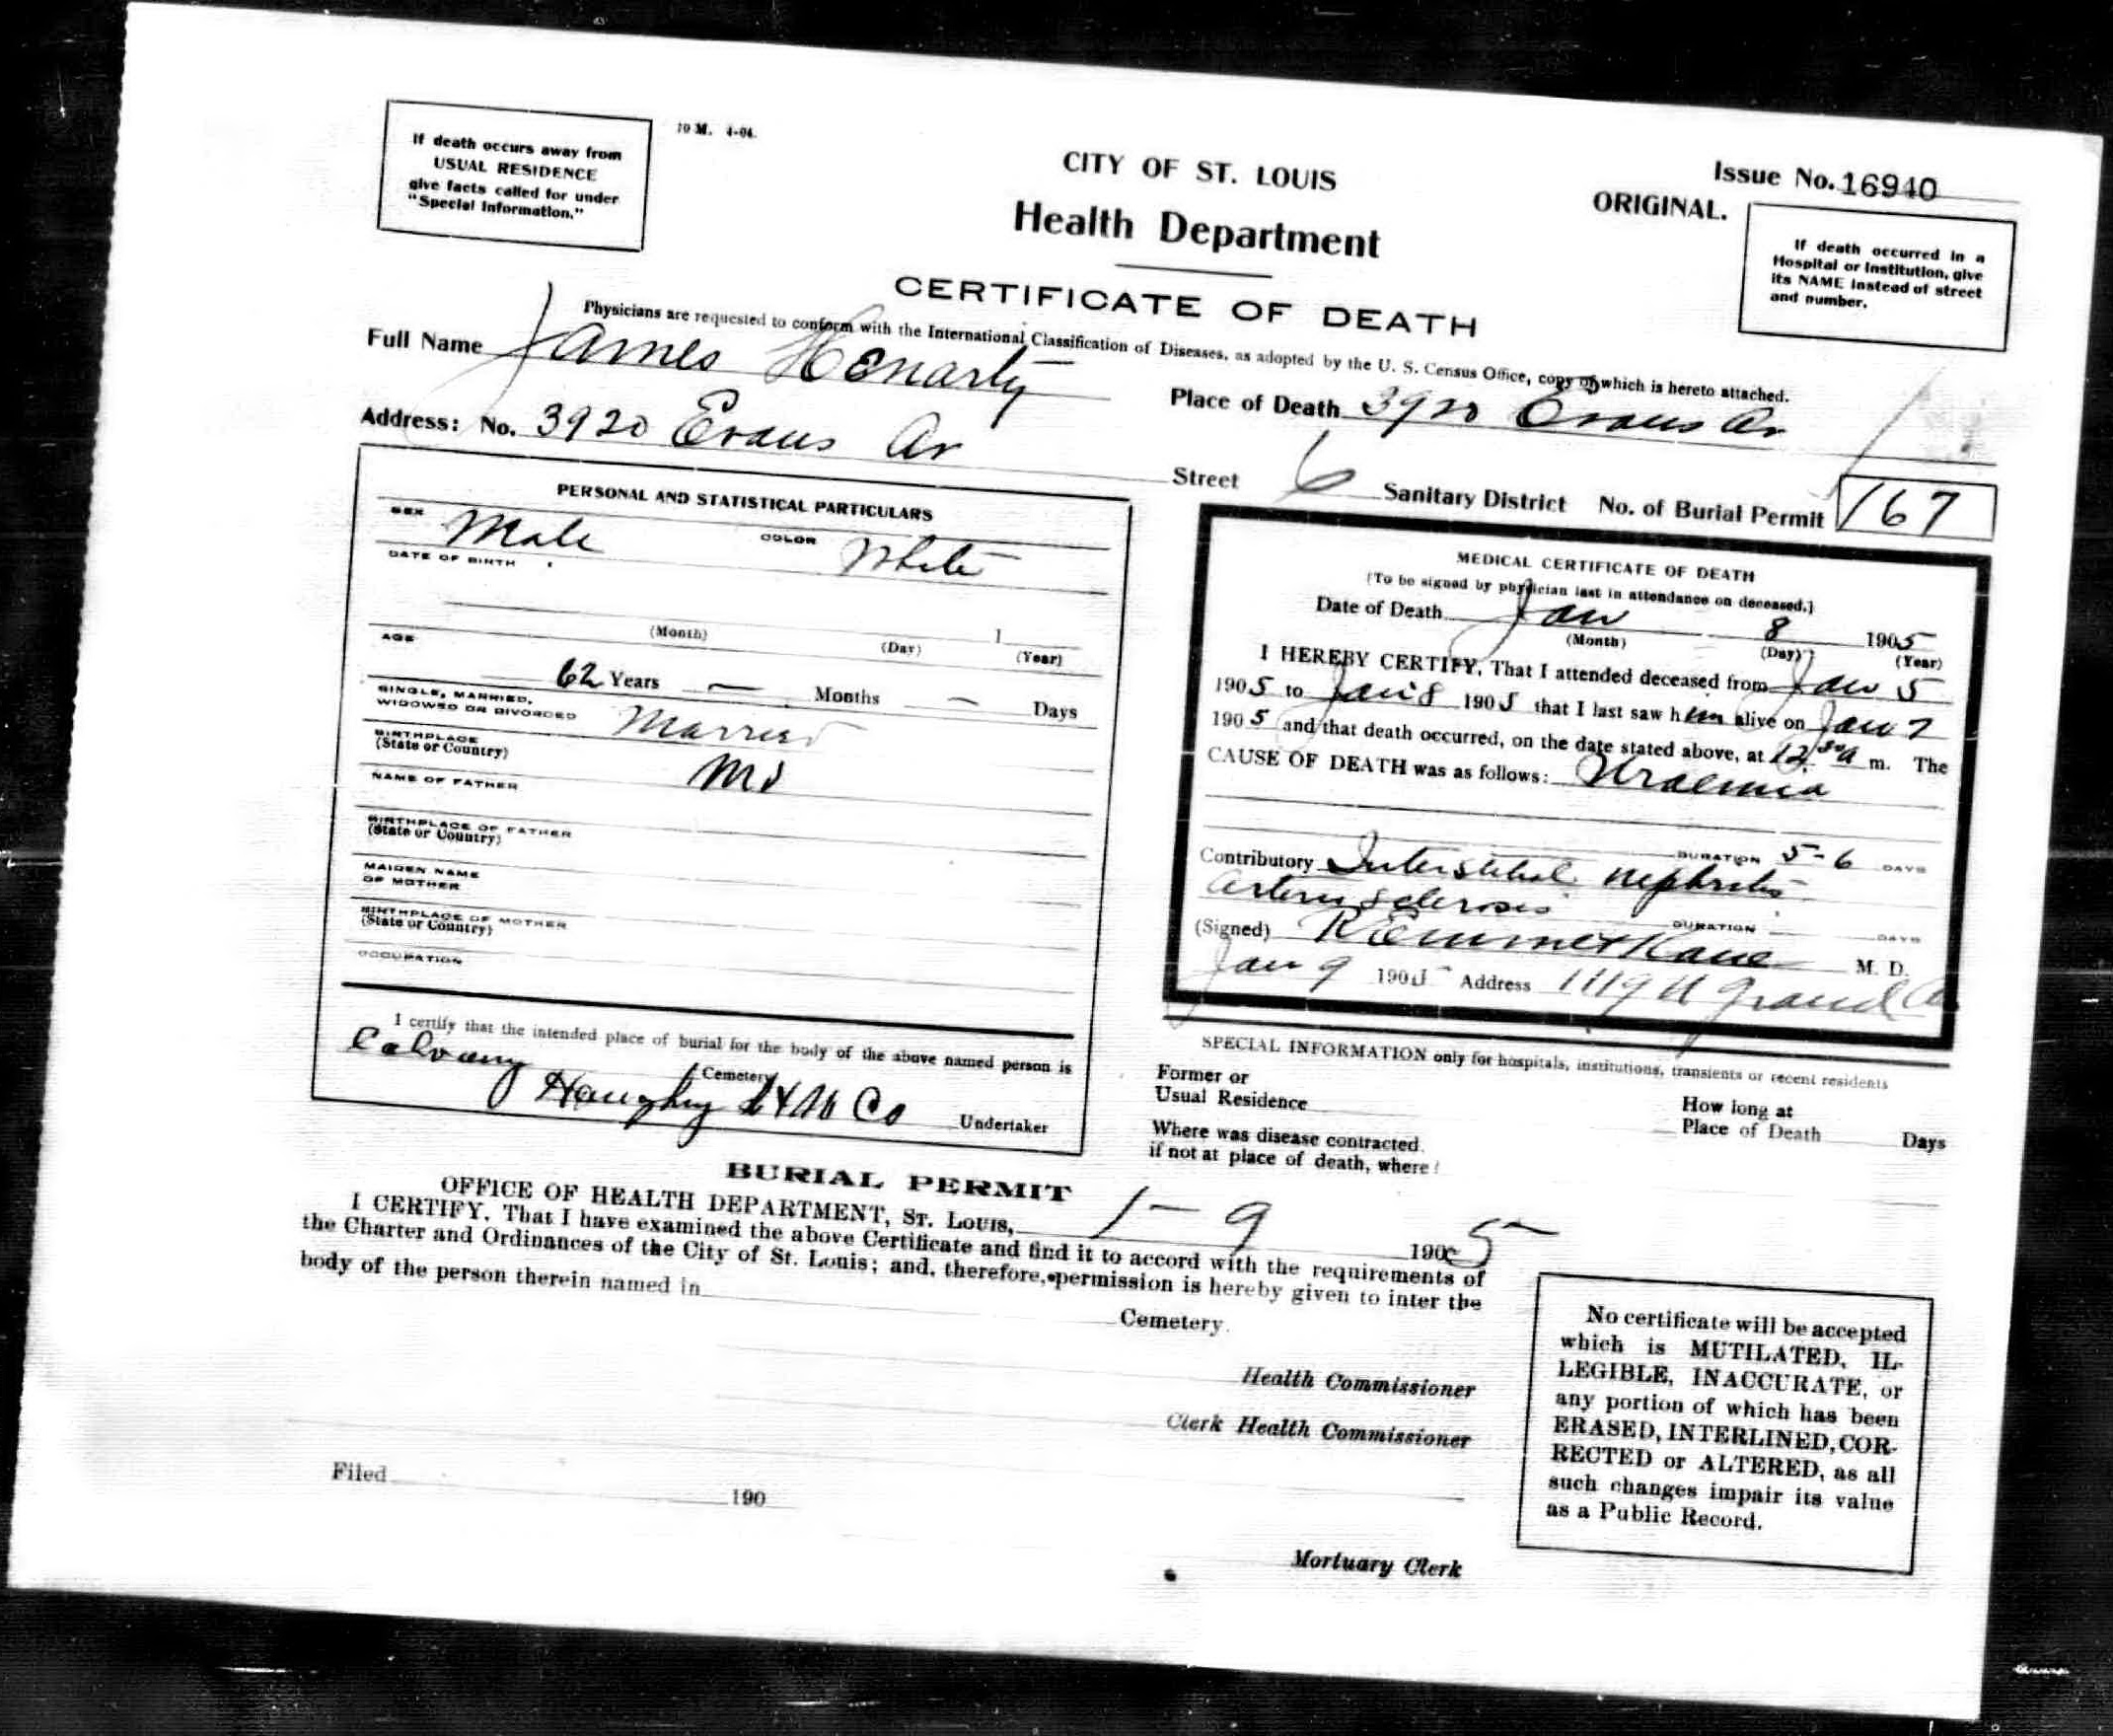 If death occurs away from
USUAL RESIDENCE
give facts called for under
"Special Information."
10 M. 4-04.
CITY OF ST. LOUIS
Health Department
Issue No. 16940
ORIGINAL.
If death occurred in a
Hospital or Institution, give
its NAME instead of street
and number.
CERTIFICATE OF DEATH
Physicians are requested to conform with the International Classification of Diseases, as adopted by the U. S. Census Office, copy of which is hereto attached.
Full Name James Henarty
Place of Death 3920 Evans Av
Address: No. 3920 Evans Av
Street 6 Sanitary District No. of Burial Permit 167
PERSONAL AND STATISTICAL PARTICULARS
SEX Male COLOR White
DATE OF BIRTH
1
(Month) (Day) (Year)
AGE
62 Years — Months — Days
SINGLE, MARRIED,
WIDOWED OR DIVORCED Married
BIRTHPLACE
(State or Country) Mo
NAME OF FATHER
BIRTHPLACE OF FATHER
(State or Country)
MAIDEN NAME
OF MOTHER
BIRTHPLACE OF MOTHER
(State or Country)
OCCUPATION
I certify that the intended place of burial for the body of the above named person is
Calvary Cemetery
Undertaker
MEDICAL CERTIFICATE OF DEATH
(To be signed by physician last in attendance on deceased.)
Date of Death Jan 8 1905
(Month) (Day) (Year)
I HEREBY CERTIFY, That I attended deceased from Jan 5
1905 to Jan 8 1905 that I last saw him alive on Jan 7
1905 and that death occurred, on the date stated above, at 12 30 a m. The
CAUSE OF DEATH was as follows: Uraemia
DURATION 5-6 DAYS
Contributory Interstitial nephritis
arterio sclerosis DURATION DAYS
(Signed) R Emmet Kane M. D.
Jan 9 1905 Address 1119 N Grand Av
SPECIAL INFORMATION only for hospitals, institutions, transients or recent residents
Former or
Usual Residence
How long at
Place of Death Days
Where was disease contracted,
if not at place of death, where?
BURIAL PERMIT
OFFICE OF HEALTH DEPARTMENT, ST. LOUIS, 1-9 1905
I CERTIFY, That I have examined the above Certificate and find it to accord with the requirements of
the Charter and Ordinances of the City of St. Louis; and, therefore, permission is hereby given to inter the
body of the person therein named in
Cemetery.
Health Commissioner
Clerk Health Commissioner
Filed 190
Mortuary Clerk
No certificate will be accepted
which is MUTILATED, IL-
LEGIBLE, INACCURATE, or
any portion of which has been
ERASED, INTERLINED, COR-
RECTED or ALTERED, as all
such changes impair its value
as a Public Record.